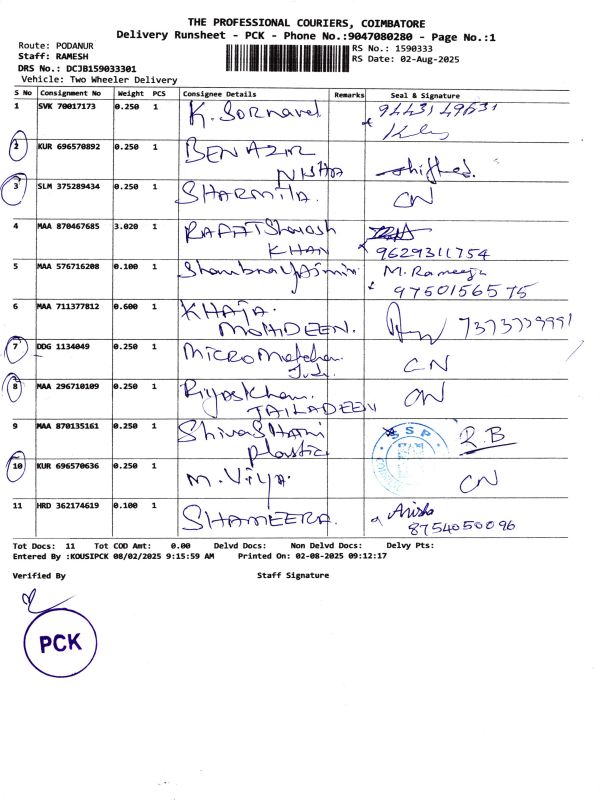 THE PROFESSIONAL COURIERS, COIMBATORE
Delivery Runsheet - PCK - Phone No.:9047080280 - Page No.:1
Route: PODANUR
Staff: RAMESH
DRS No.: DCJB159033301
Vehicle: Two Wheeler Delivery
RS No.: 1590333
RS Date: 02-Aug-2025
S No Consignment No Weight PCS Consignee Details Remarks Seal & Signature
1 SVK 70017173 0.250 1 K. Sornavel 9443149631
2 KUR 696570892 0.250 1 BENAZIR NISHA shifted.
3 SLM 375289434 0.250 1 SHARMILA. CN
4 MAA 870467685 3.020 1 KHAN 9629311754
5 MAA 576716208 0.100 1 M. Rameeja
9750156575
6 MAA 711377812 0.600 1 KHAJA.
MOHIDEEN. 7373739991
7 DDG 1134049 0.250 1 CN
8 MAA 296710109 0.250 1 Riyaskhan. CN
JAILADEEN
9 MAA 870135161 0.250 1 Plastic SSP R.B
10 KUR 696570636 0.250 1 M. Vilya. CN
11 HRD 362174619 0.100 1 SHAMEERA. 8754050096
Tot Docs: 11 Tot COD Amt: 0.00 Delvd Docs: Non Delvd Docs: Delvy Pts:
Entered By :KOUSIPCK 08/02/2025 9:15:59 AM Printed On: 02-08-2025 09:12:17
Verified By Staff Signature
PCK